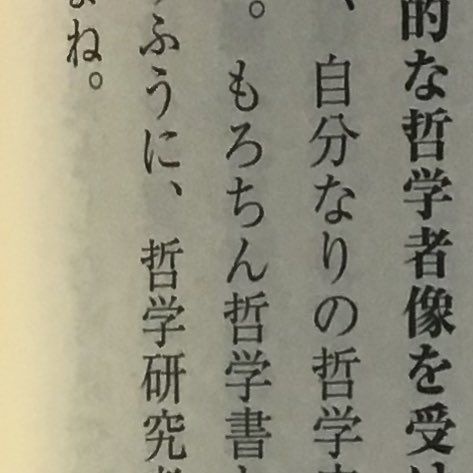 的な哲学者像を受
、自分なりの哲学
。もろちん哲学書
ふうに、哲学研究
ね。